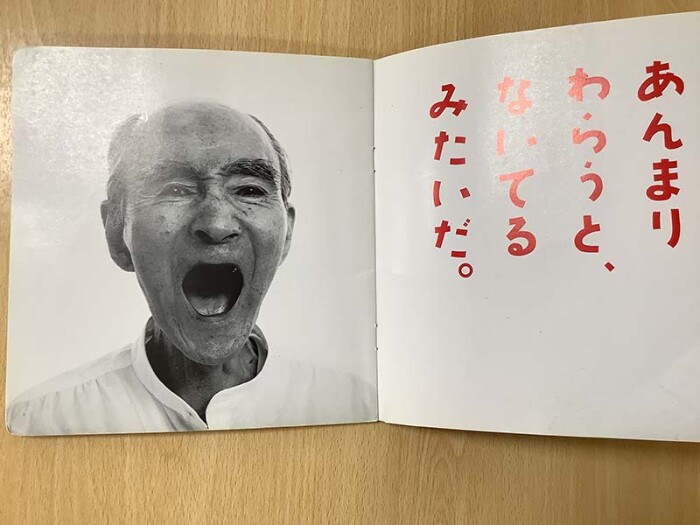 あんまり
わらうと、
ないてる
みたいだ。